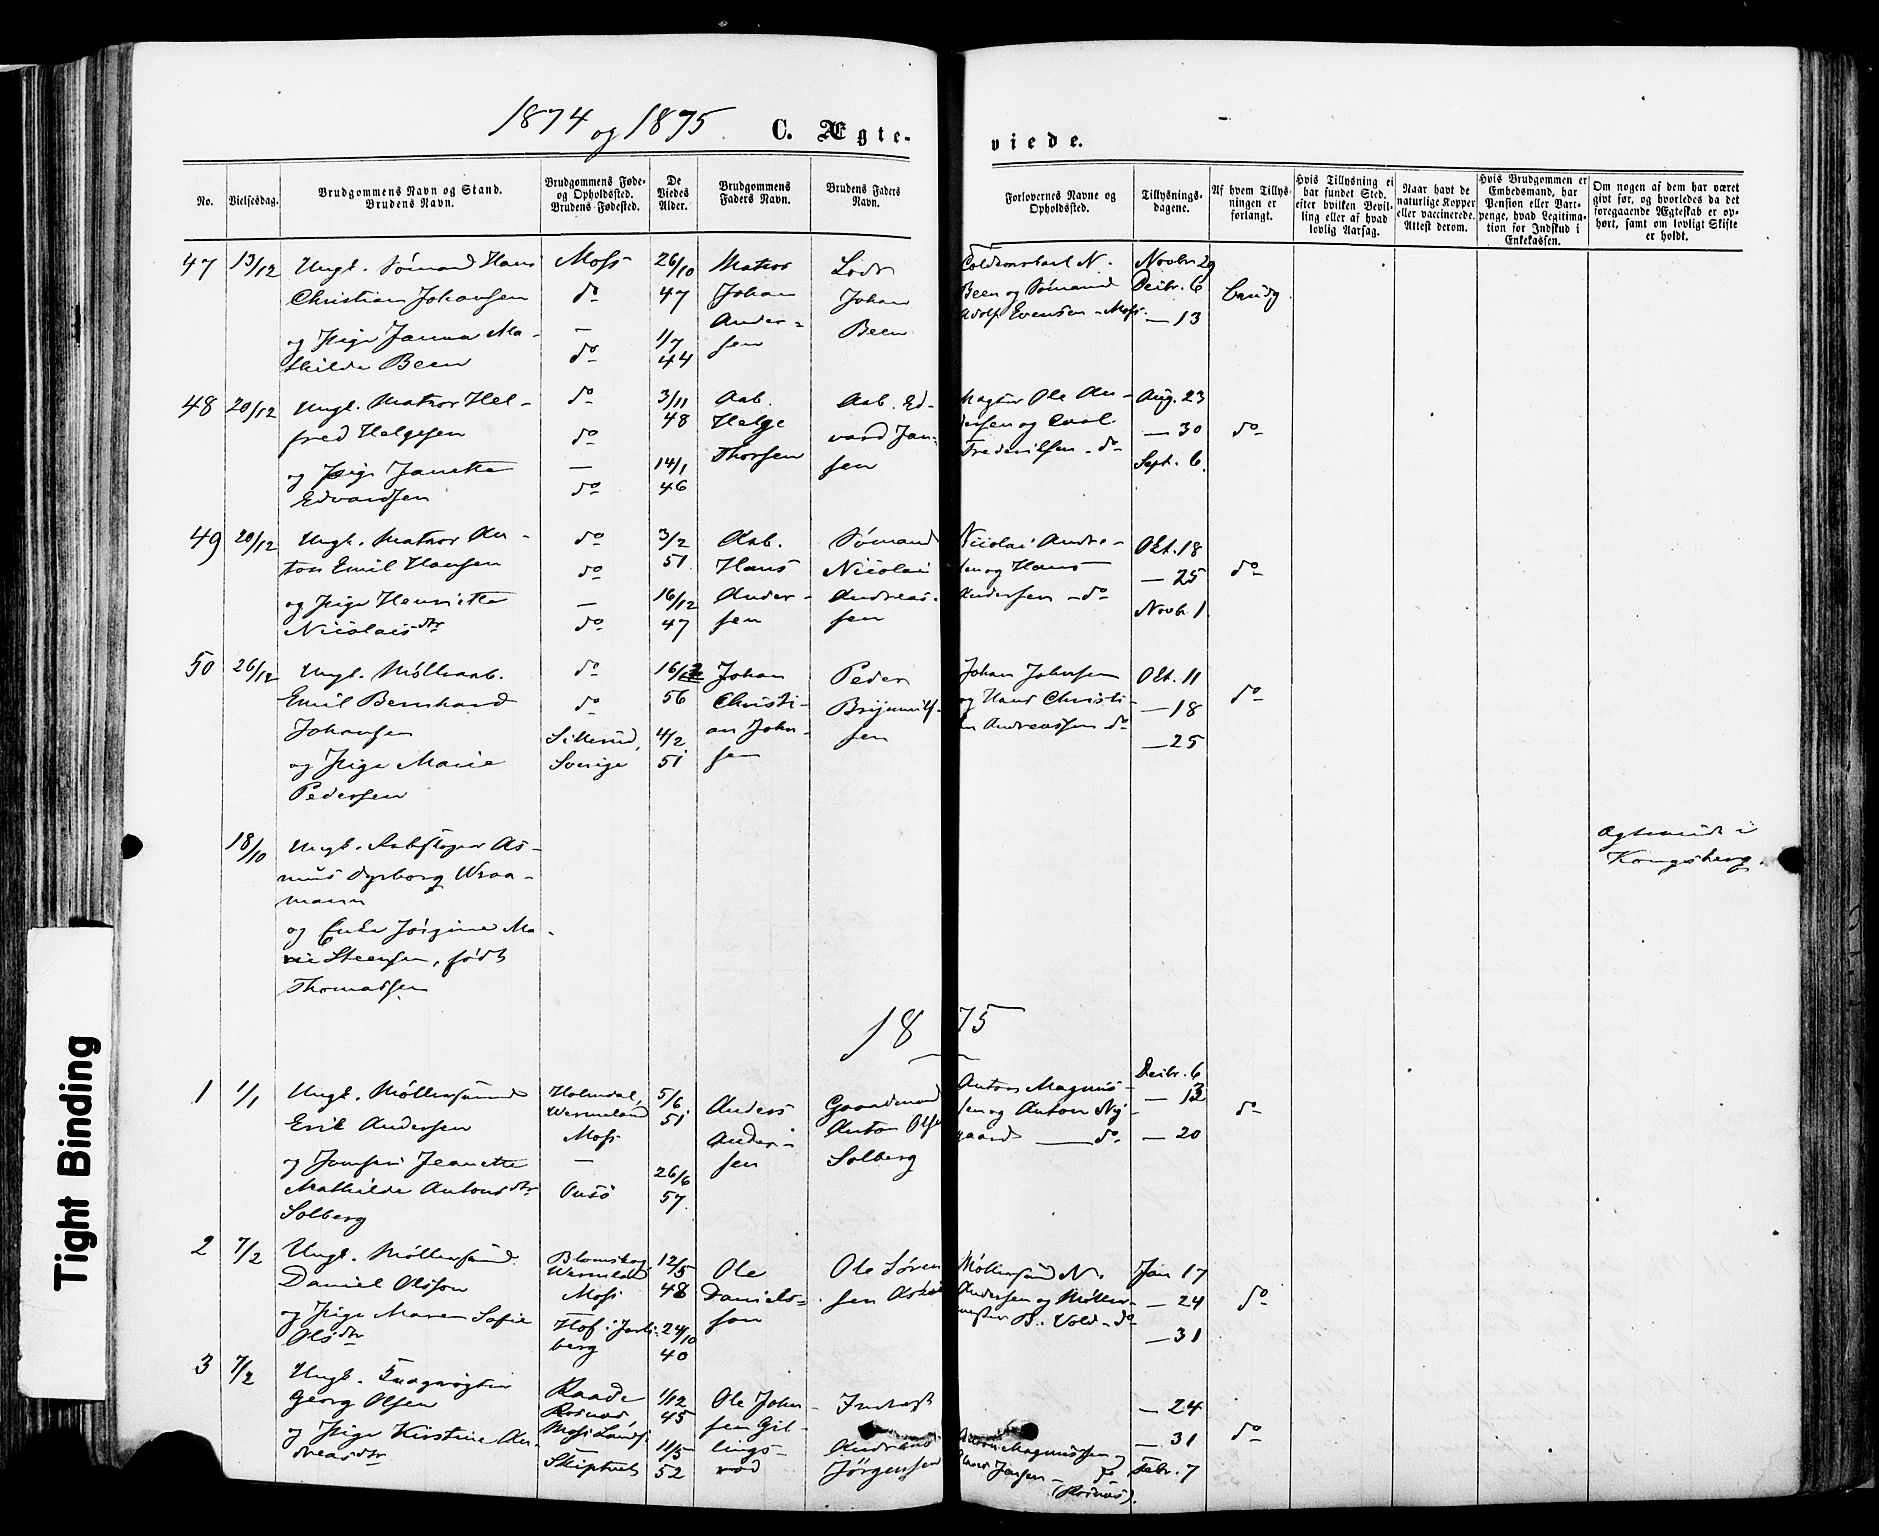 1874 og 1875. C. Ægte-
viede.
No.
Vielsesdag.
Brudgommens Navn og Stand.
Brudens Navn.
Brudgommens Føde-
og Opholdssted.
Brudens Fødested.
De
Viedes
Alder.
Brudgommens
Faders Navn.
Brudens Faders
Navn.
Forlovernes Navne og
Opholdssted.
Tillysnings-
dagene.
Af hvem Tillys-
ningen er
forlangt.
Hvis Tillysning ei
har fundet Sted,
efter hvilken Bevil-
ling eller af hvad
lovlig Aarsag.
Naar havt de
naturlige Kopper
eller vaccinerede.
Attest derom.
Hvis Brudgommen er
Embedsmand, har
Pension eller Vart-
penge, hvad Legitima-
tion for Indskud i
Enkekassen.
Om nogen af dem har været
gift før, og hvorledes da det
foregaaende Ægteskab er op-
hørt, samt om lovligt Skifte
er holdt.
47 13/12
Ungk. Sømand Hans
Christian Johansen
og Pige Janna Ma-
thilde Been
Moss
do
—
do
26/10
47
1/7
44
Matros
Johan
Ander-
sen
Lods
Johan
Been
N.
Been og Sømand
Adolf Evensen - Moss
Novbr. 29
Decbr. 6
— 13
48 20/12
Ungk. Matros Hel-
fred Helgesen
og Pige Janette
Edvardsen
do
do
—
do
3/11
48
14/1
46
Aab.
Helge
Thorsen
Aab. Ed-
vard Jan-
sen
Ole An-
dersen og Carl
Frederiksen - do
Aug. 23
— 30
Sept. 6.
do
49 20/12
Ungk. Matros An-
ton Emil Hansen
og Pige Henriette
Nicolaisdtr
do
do
—
do
3/2
51.
16/12
47
Aab.
Hans
Ander-
sen
Sømand
Nicolai
Andreas-
sen
Nicolai Andre-
sen og Hans
Andersen - do
Okt. 18
— 25
Novbr. 1
do
50 26/12
Ungk. Møllearb.
Emil Bernhard
Johansen
og Pige Marie
Pedersen
do
do
Sverige
16/12
56
4/2
51
Johan
Christi-
an John-
sen
Peder
sen
Johan Johnsen
og Hans Christi-
an Andreassen do
Okt. 11
— 18
— 25
do
18/10
Ungk. As-
mus Dyrborg Wraa-
mann
og Enke Jørgine Ma-
rie Steensen, født
Thomassen
Ægteviede i
Kongsberg.
1875
1 1/1
Ungk. Møllersvend
Erik Andersen
og Jomfru Jeanette
Mathilde Antonsdtr
Solberg
Holmdal,
Wermeland
Moss
—
Onsø
5/6
51
26/6
57
Anders
Ander-
sen
Gaardmand
Anton Olsen
Solberg
Anton Magnus-
sen og Anton Ny-
gaard — do
Decbr. 6
— 13
— 20
do
2 7/2
Ungk. Møllersvend
Daniel Olsson
og Pige Maren Sofie
Olsdtr
Blomskog
Wermland
Moss
Hof i Jarls-
berg
12/5
48
24/10
40
Ole
Daniels-
son
Ole Søren-
sen
Møllersvend N.
Andersen og Møller-
mester B. Vold - do
Jan 17
— 24
— 31
do
3 7/2
Ungk.
Georg Olsen
og Pige Kirstine An-
dreasdtr
Raade
Moss Lands.
Skiptvet
1/12
45
11/5
52
Ole John-
sen Gil-
lings-
rød
Inderst
Andreas
Jørgensen
Anton Magnussen og
Hans Jensen -
— 24
— 31
Febr. 7
do
Tight Binding